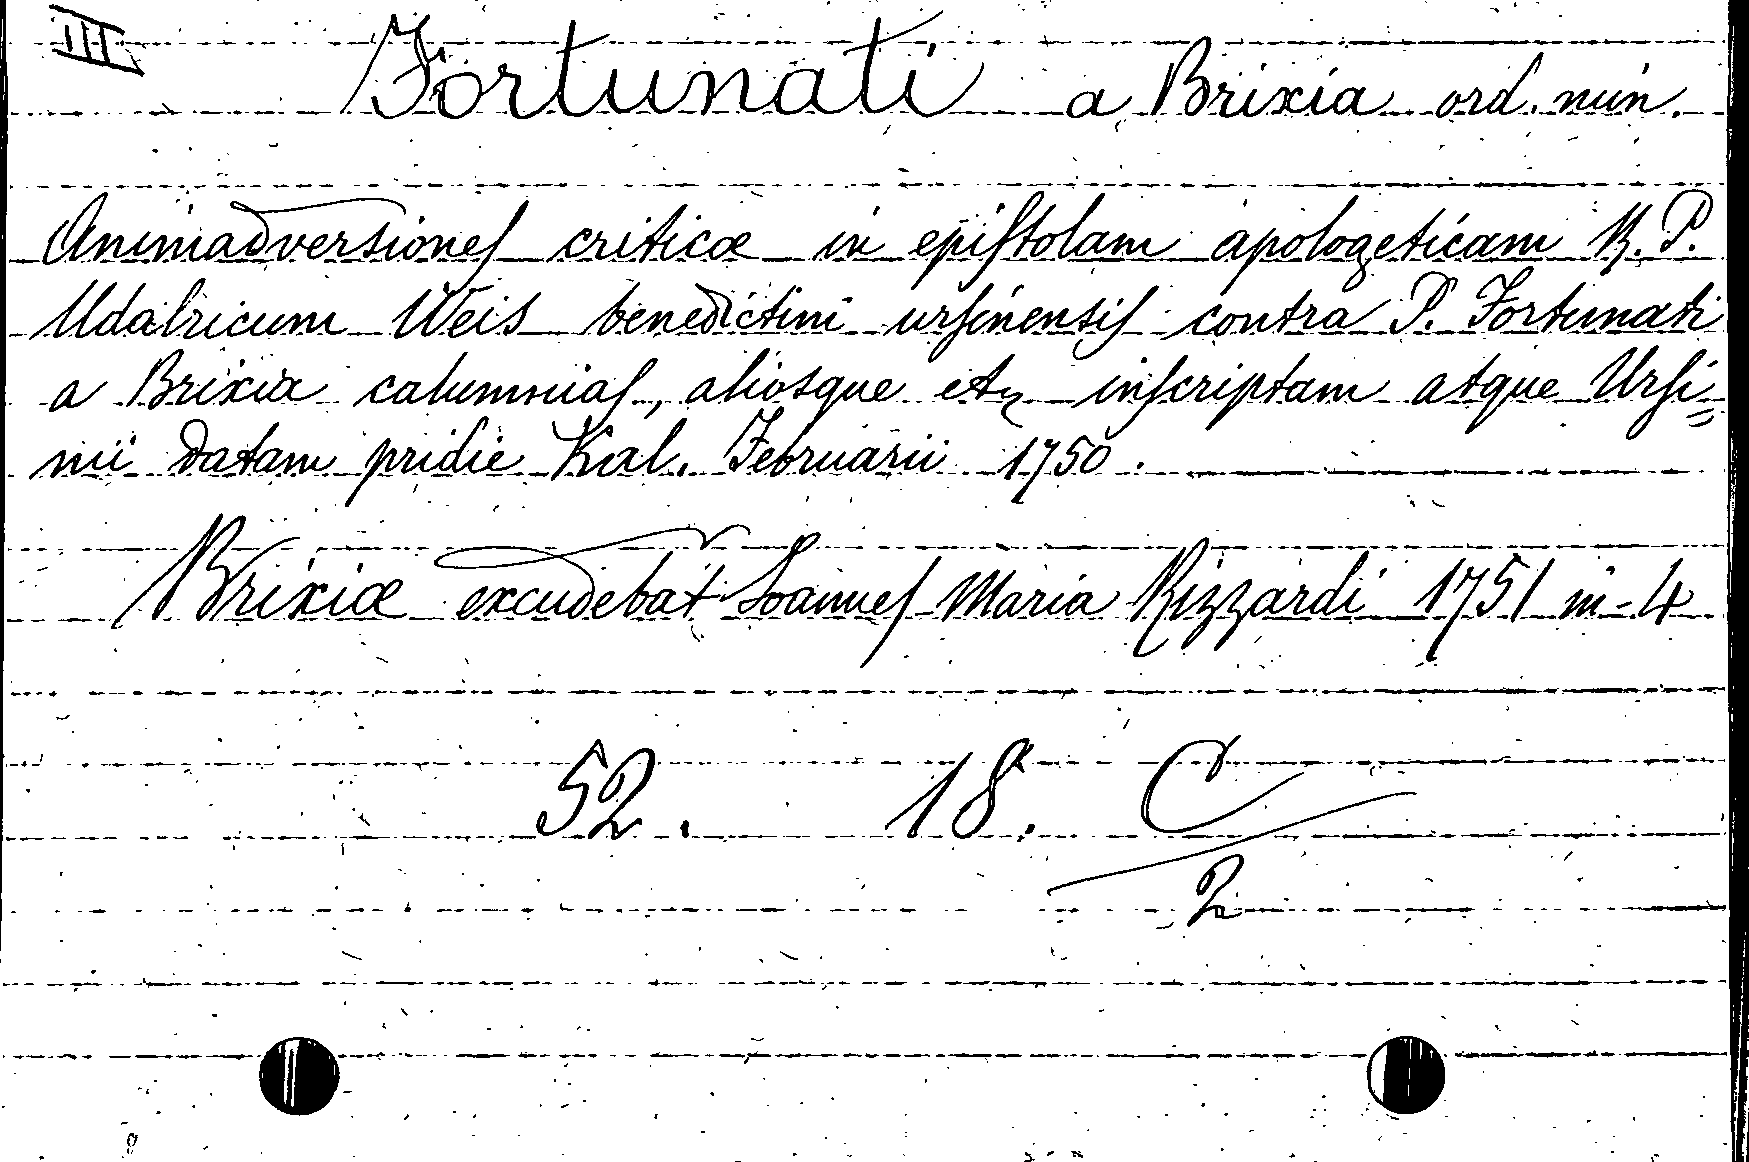 III
Fortunati a Brixia ord. min.
Animadversiones criticæ in epistolam apologeticam R. P.
Udalricum Weis benedictini ursinensis contra P. Fortunati
a Brixia calumnias, aliosque etc inscriptam atque Ursi=
nii datam pridie Kal. Februarii 1750.
Brixiæ excudebat Ioannes Maria Rizzardi 1751 in-4
52. 18. C
2